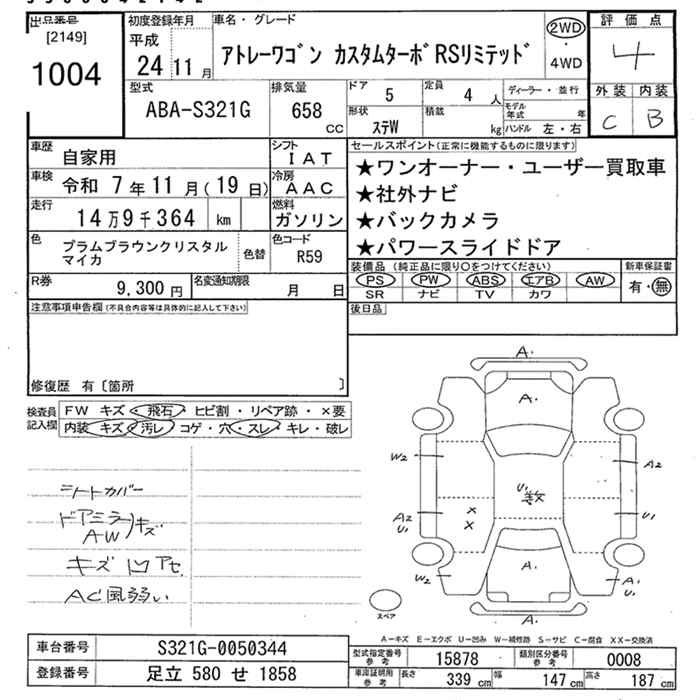 出品番号
[2149]
1004
初度登録年月
平成
24 11 月
車名・グレード
アトレーワゴン カスタムターボRSリミテッド
2WD
・
4WD
評価点
4
外装 内装
C B
型式
ABA-S321G
排気量
658
cc
ドア
5
定員
4 人
形状
ステW
積載
kg
ディーラー・並行
モデル年式 年
ハンドル 左・右
車歴
自家用
シフト
IAT
車検
令和 7 年 11 月(19 日)
冷房
AAC
走行
14 万 9 千 364 km
燃料
ガソリン
色
プラムブラウンクリスタル
マイカ
色替
色コード
R59
R券
9,300 円
名変通知期限
月 日
セールスポイント(正常に機能するものに限ります)
★ワンオーナー・ユーザー買取車
★社外ナビ
★バックカメラ
★パワースライドドア
装備品(純正品に限り○をつけてください)
PS PW ABS エアB AW
SR ナビ TV カワ
新車保証書
有・無
注意事項申告欄(不具合内容等は具体的に記入して下さい)
後日品
修復歴 有〔箇所 〕
検査員
記入欄
FW キズ・飛石・ヒビ割・リペア跡・×要
内装 キズ・汚レ コゲ・穴・スレ・キレ・破レ
シートカバー
ドアミラー
AW
キズ
キズ 凹 アセ
AC風弱い
A・
A・
W2
A2
U1
数
A2
U1
×
×
U1
W2
A・
A・
U1
スペア
A-キズ E-エクボ U-凹み W-補修跡 S-サビ C-腐食 XX-交換済
車台番号
S321G-0050344
登録番号
足立 580 せ 1858
型式指定番号
参考
15878
類別区分番号
参考
0008
車庫証明用
参考
長さ 339 cm
幅 147 cm
高さ 187 cm